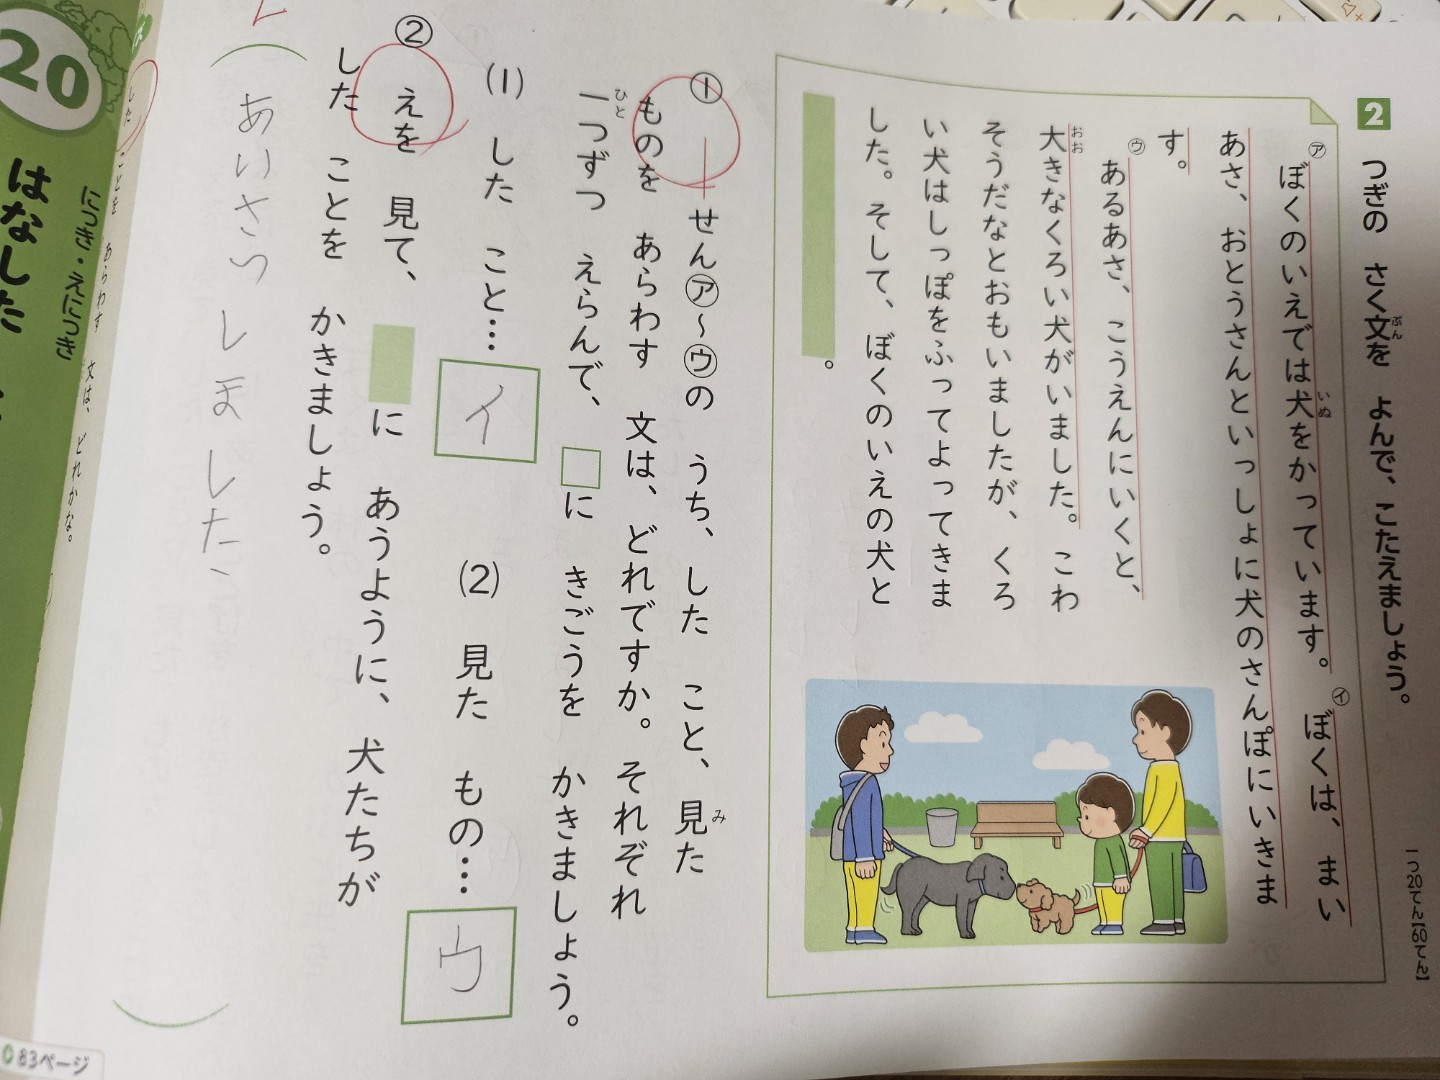 2 つぎの さく文を よんで、こたえましょう。
ぶん
一つ20てん【60てん】
㋐ぼくのいえでは犬をかっています。㋑ぼくは、まい
いぬ
あさ、おとうさんといっしょに犬のさんぽにいきま
す。
㋒あるあさ、こうえんにいくと、
大きなくろい犬がいました。こわ
おお
そうだなとおもいましたが、くろ
い犬はしっぽをふってよってきま
した。そして、ぼくのいえの犬と
。
① ―せん㋐～㋒の うち、した こと、見た
み
ものを あらわす 文は、どれですか。それぞれ
一つずつ えらんで、□に きごうを かきましょう。
ひと
(1) した こと…イ
(2) 見た もの…ウ
② えを 見て、 に あうように、犬たちが
した ことを かきましょう。
あいさつしました
した ことを あらわす 文は、どれかな。
にっき・えにっき
20
はなした
83ページ